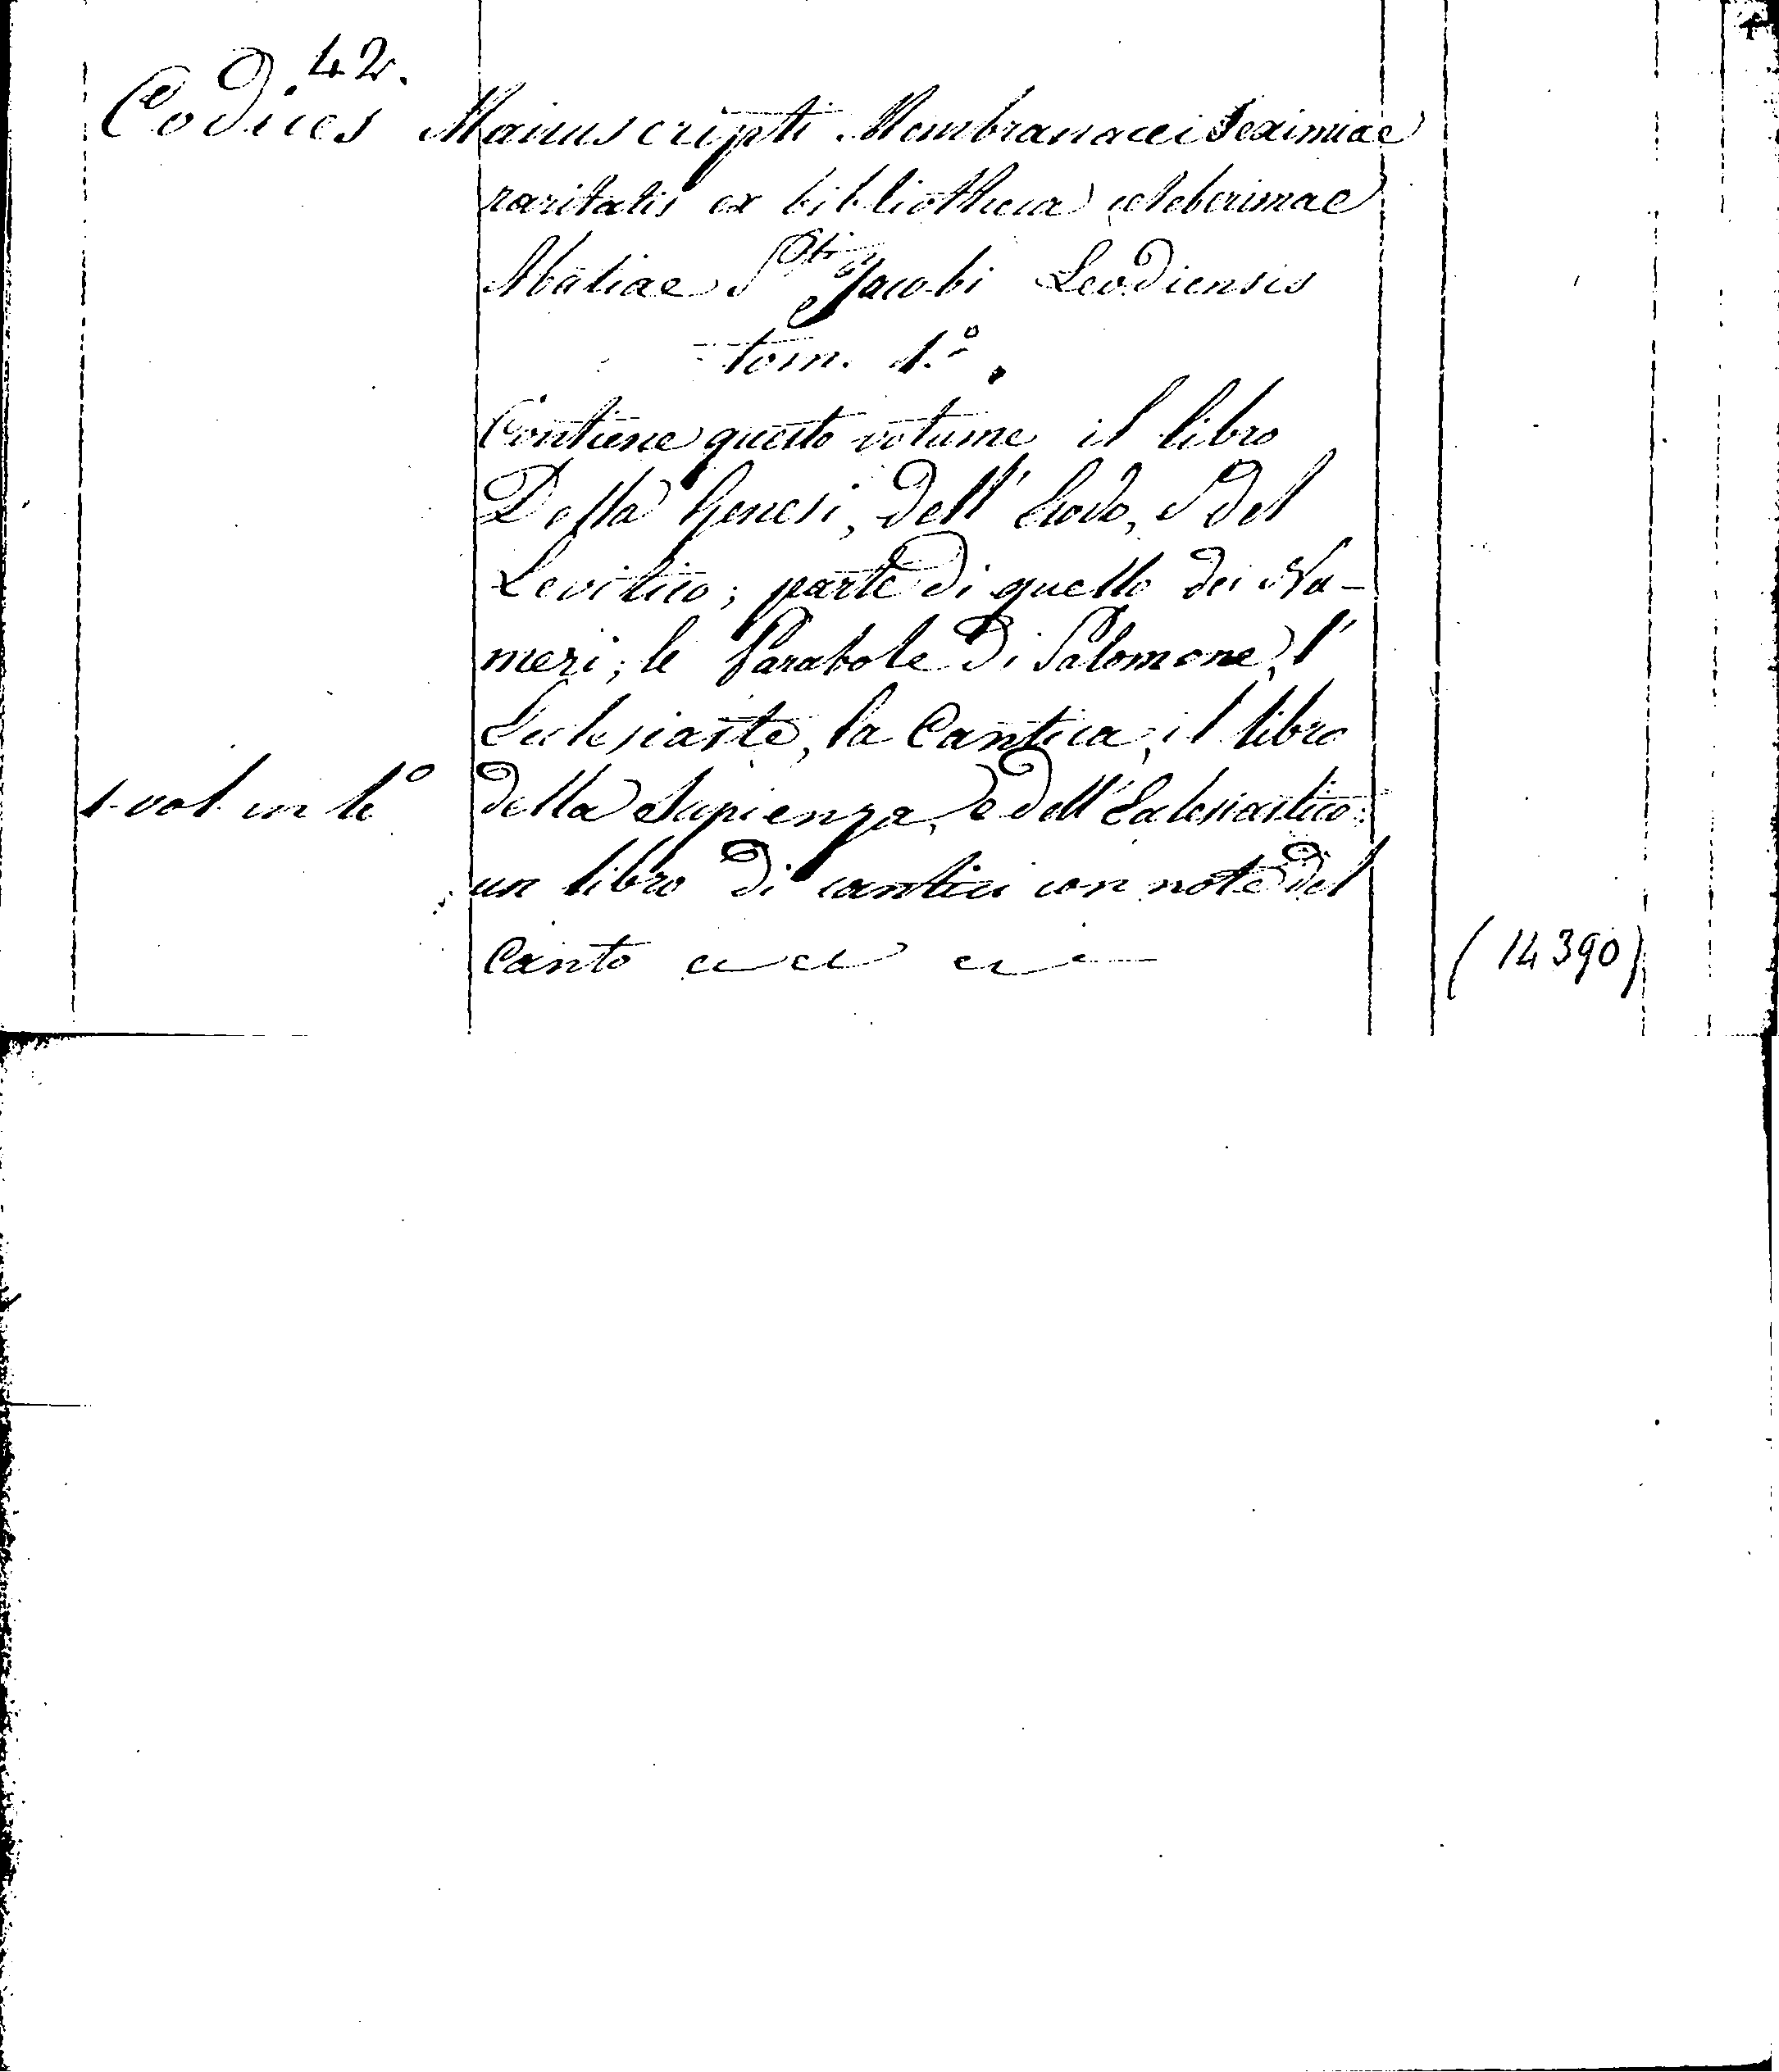 42.
Codices Manuscripti Membranacei eximiae
raritatis ex bibliotheca celeberimae
Abatiae Sti Jacobi Leodiensis
tom. 1.o
Contiene questo volume il libro
Della Genesi, dell' Esodo, e del
Levitico; parte di quello dei Nu-
meri; le Parabole di Salomone, l'
Ecclesiaste, la Cantica, il libro
1. vol. in 4o della Sapienza, e dell' Eclesiastico:
un libro di cantici con note del
Canto
(14390)